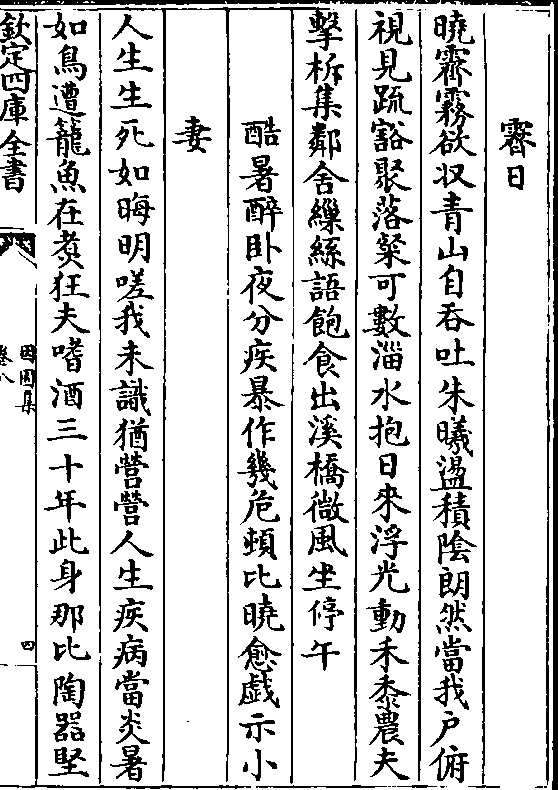 霽日
曉霽霧欲収青山自吞吐朱曦盪積陰朗然當我戸俯
視見疏豁聚落粲可數淄水抱日來浮光動禾黍農夫
擊柝集鄰舍繅絲語飽食出溪橋微風坐停午
酷暑醉卧夜分疾暴作幾危頓比曉愈戲示小
妻
人生生死如晦明嗟我未識猶營營人生疾病當炎暑
如鳥遭籠魚在煑狂夫嗜酒三十年此身那比陶器堅
欽定四庫全書
因園集
卷八
四